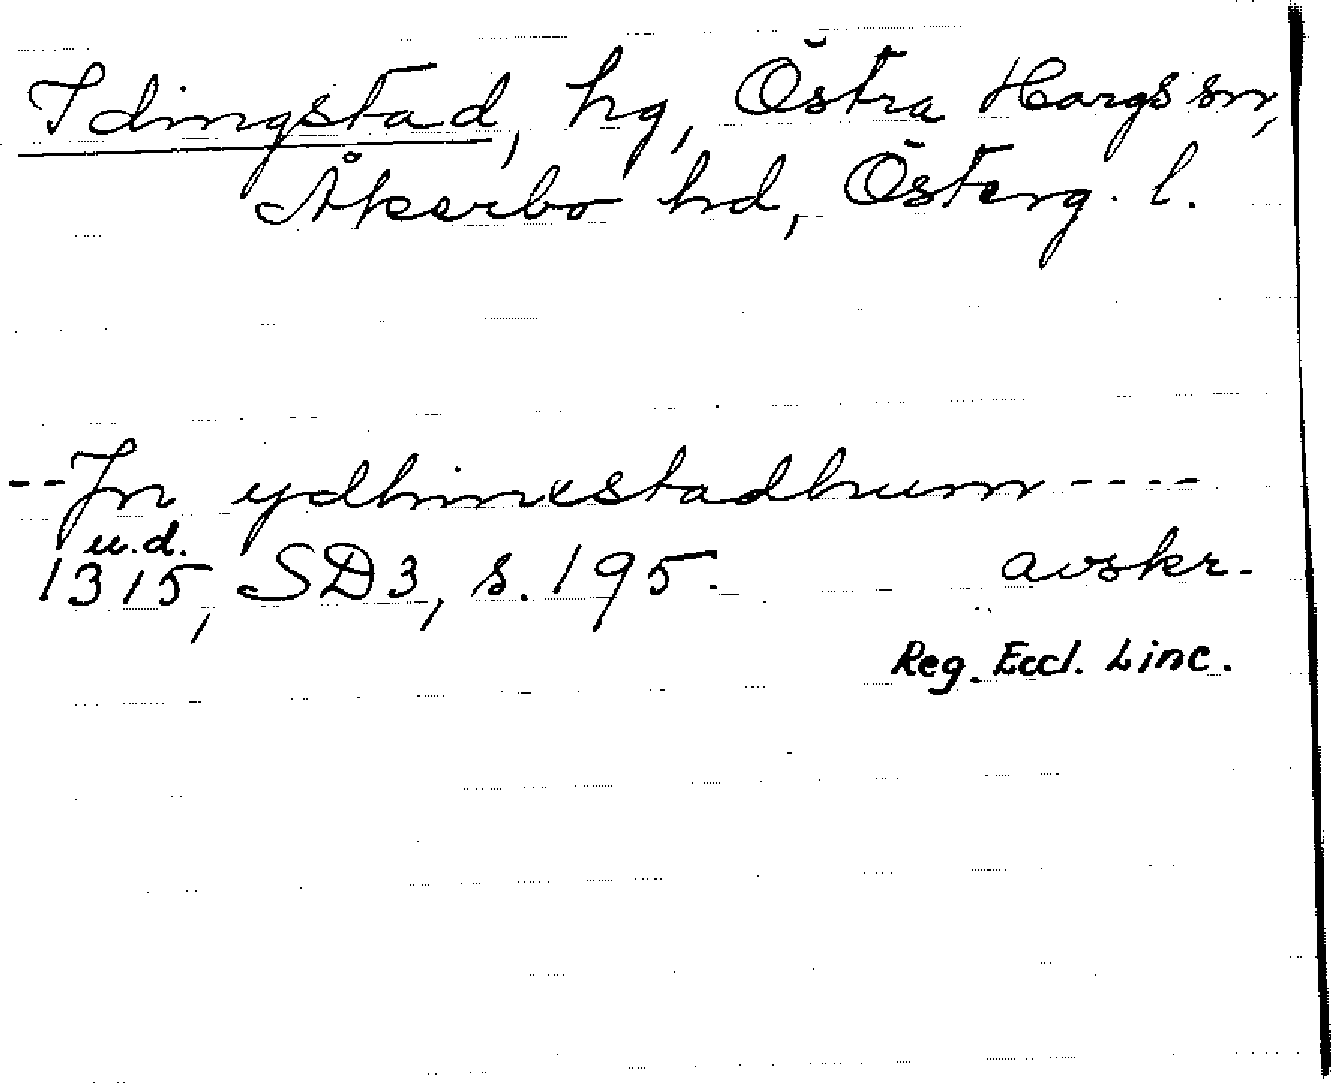 Idingstad, hg, Östra Hargs sn,
Åkerbo hd, Österg. l.
-- Jn ydhinxstadhum ----
u.d.
1315, SD3, s. 195. avskr.
Reg. Eccl. Linc.